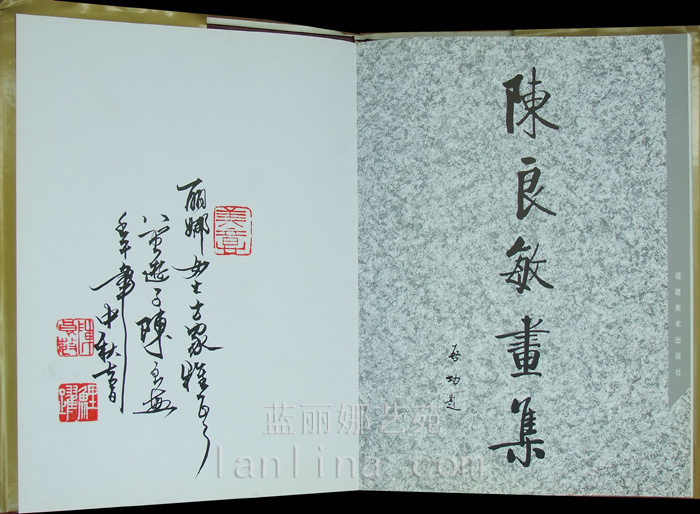 丽娜女士方家雅正
遊子陳良敏
年中秋
陳良敏畫集
启功题
福建美术出版社
蓝丽娜艺苑
lanlina.com